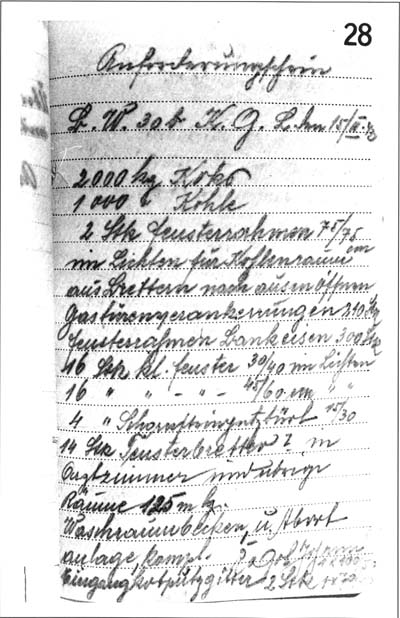 28
Anforderungsschein
B. W. 30 b K. G. L. den 15/
2000 kg Koks
1000 " Kohle
2 Stk Fensterrahmen 75/75 cm
im Lichten für Kohlenraum
aus Brettern nach ausen öffnen
Gastürenverankerungen 210 Stk
Fensterrahmen Bankeisen 300 Stk
16 Stk kl. Fenster 30/40 im Lichten
16 " " - " - 45/60 cm " "
4 " Schornsteinputztürl 15/30
14 Stk Fensterbretter in
Arztzimmer und übrige
Räume 125 m
Waschraumbecken, u. Abort
anlage, kompl.
Eingang Kotputzgitter 2 Stk